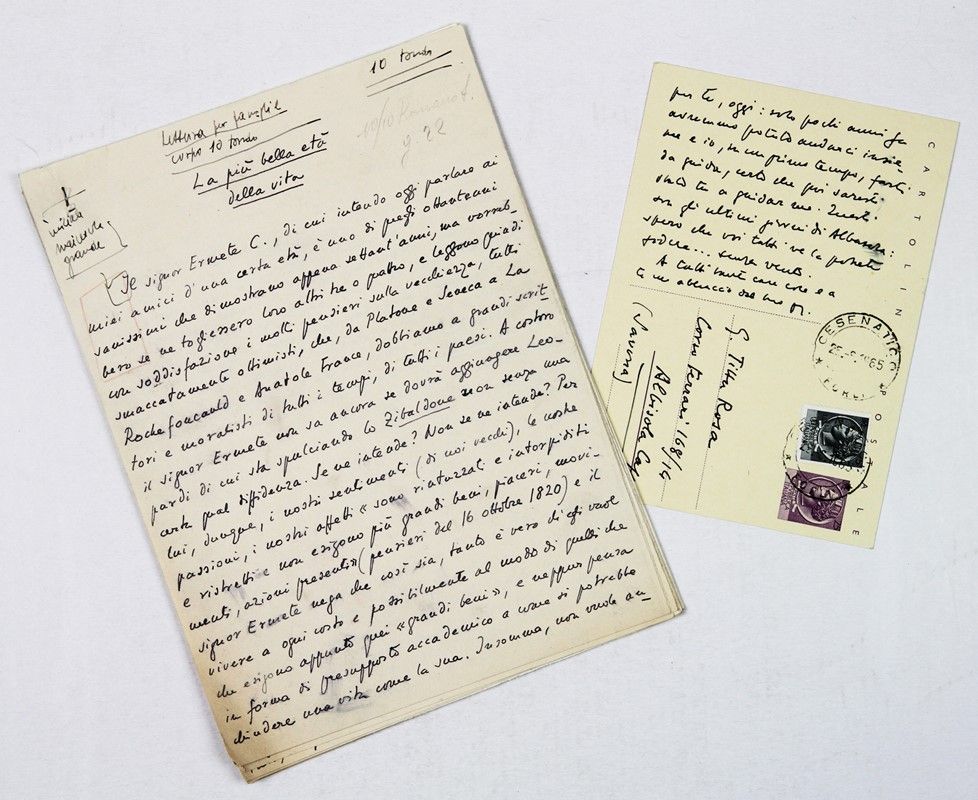 10 tondo
Lettura per
corpo 10 tondo
10/10 Romano
g. 22
La più bella età
della vita
iniziale
grande
Il signor Ermete C., di cui intendo oggi parlare ai
miei amici d'una certa età, è uno di quegli ottantenni
sanissimi che dimostrano appena settant'anni, ma vorreb-
bero se ne togliessero loro altri tre o quattro, e leggono quindi
con soddisfazione i molti pensieri sulla vecchiezza, tutti
smaccatamente ottimisti, che, da Platone e Seneca a La
Rochefoucauld e Anatole France, dobbiamo a grandi scrit-
tori e moralisti di tutti i tempi, di tutti i paesi. A costoro
il signor Ermete non sa ancora se dovrà aggiungere Leo-
pardi di cui sta spulciando lo Zibaldone non senza una
certa qual diffidenza. Se ne intende? Non se ne intende? Per
lui, dunque, i nostri sentimenti (di noi vecchi), le nostre
passioni, i nostri affetti « sono rintuzzati e intorpiditi
e ristretti e non esigono più grandi beni, piaceri, movi-
menti, azioni presenti» (pensieri del 16 ottobre 1820) e il
signor Ermete nega che così sia, tanto è vero ch'egli vuole
vivere a ogni costo e possibilmente al modo di quelli che
che esigono appunto quei «grandi beni», e neppur pensa
in forma di presupposto accademico a come si potrebbe
chiudere una vita come la sua. Insomma, non vuole an-
per te, oggi: solo pochi anni fa
avremmo potuto andarci insie-
me e io, in un primo tempo, farti
da guida, certo che poi saresti
stato te a guidar me. Questi
son gli ultimi giorni di
spero che voi tutti ve la potrete
godere... senza vento.
A tutti tante care cose e a
te un abbraccio dal tuo M.
CARTOLINA POSTALE
G. Titta Rosa
Corso Ferrari 168/14
Albisola Capo
(Savona)
CESENATICO
1965
FORLI